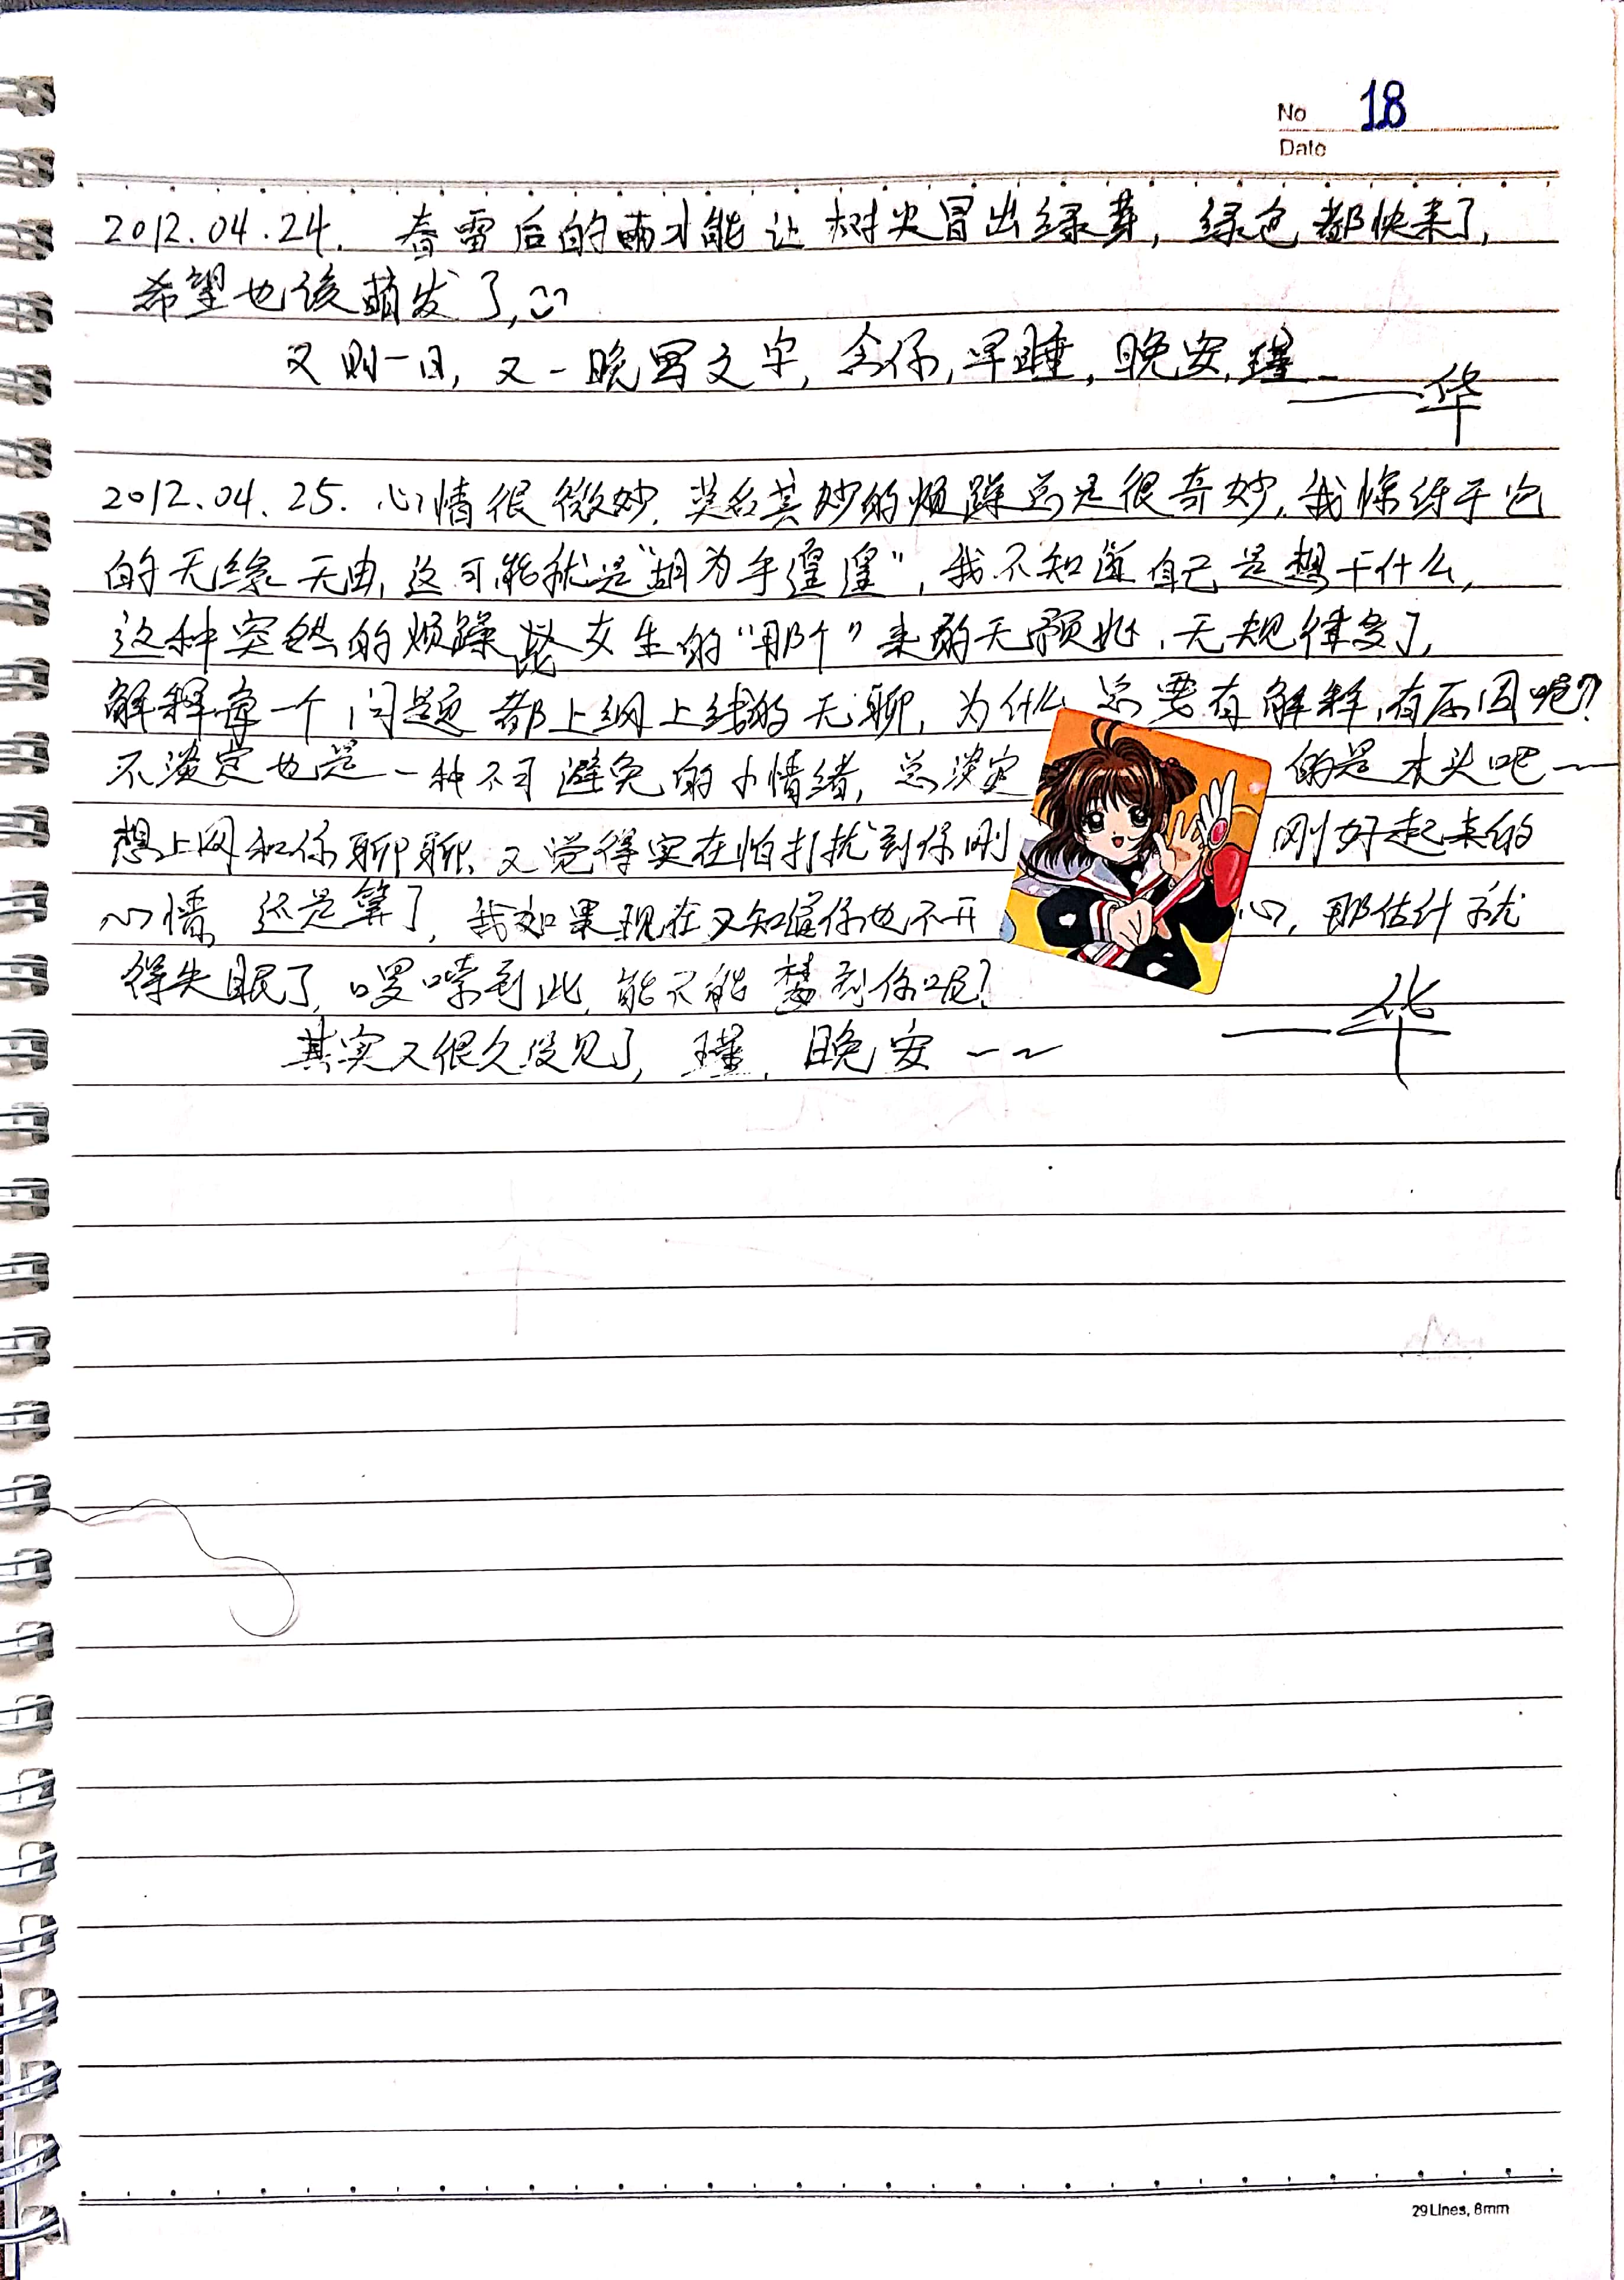 No 18
Date
2012.04.24. 春雷后的雨才能让树尖冒出绿芽, 绿色都快来了,
希望也该萌发了,
又则一日, 又一晚写文字, 念你, 早睡, 晚安, 瑾
——华
2012.04.25. 心情很微妙, 莫名其妙的烦躁总是很奇妙, 我惊讶于它
的无缘无由, 这可能就是"胡为乎遑遑", 我不知道自己是想干什么,
这种突然的烦躁比女生的"那个"来的无预兆、无规律多了,
解释每一个问题都上纲上线的无聊, 为什么总要有解释,有原因呢?
不淡定也是一种不可避免的小情绪, 总淡定的是木头吧~
想上网和你聊聊, 又觉得实在怕打扰到你刚刚好起来的
心情, 还是算了, 我如果现在又知道你也不开心, 那估计就
得失眠了, 啰嗦到此, 能不能梦到你呢?
——华
其实又很久没见了, 瑾, 晚安 ~~
29Lines, 8mm